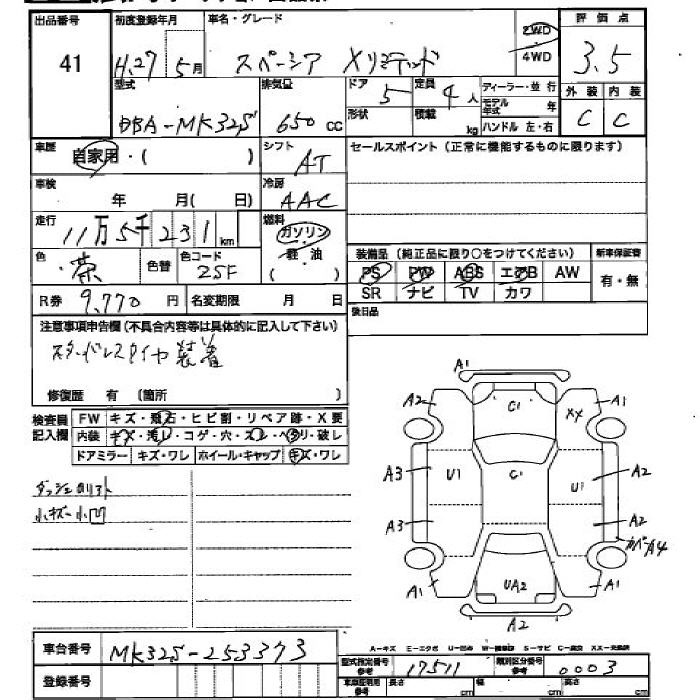 出品番号 初度登録年月 車名・グレード 評価点
41 H.27 5月 スペーシア Xリミテッド 2WD 4WD 3.5
型式 排気量 ドア 定員 ディーラー・並行 外装 内装
DBA-MK32S 650 cc 5 4人 モデル年式 年 C C
形状 積載 kg ハンドル 左・右
車歴 自家用・( ) シフト AT セールスポイント (正常に機能するものに限ります)
車検 年 月( 日) 冷房 AAC
走行 11万5千231km 燃料 ガソリン 軽・油 ( )
色 茶 色替 色コード ZSF
装備品 (純正品に限り○をつけてください) 新車保証書
PS PW ABS エアB AW 有・無
SR ナビ TV カワ
R券 9,770円 名変期限 月 日
後日品
注意事項申告欄 (不具合内容等は具体的に記入して下さい)
スタッドレスタイヤ装着
修復歴 有 (箇所 )
検査員記入欄 FW キズ・飛石・ヒビ割・リペア跡・X要
内装 キズ・汚レ・コゲ・穴・スレ・ヘタリ・破レ
ドアミラー キズ・ワレ ホイール・キャップ キズ・ワレ
ダッシュ
小キズ 小凹
A1
A2 C1 XX A1
A3 U1 C1 U1 A2
A3 A2
カバーA4
A1 UA2 A1
A2
A-キズ E-エクボ U-凹み W-補修跡 S-サビ C-腐食 XX-交換済
車台番号 MK32S-253373
型式指定番号 参考 17511 類別区分番号 参考 0003
登録番号
車車証明用 参考 長さ cm 幅 cm 高さ cm